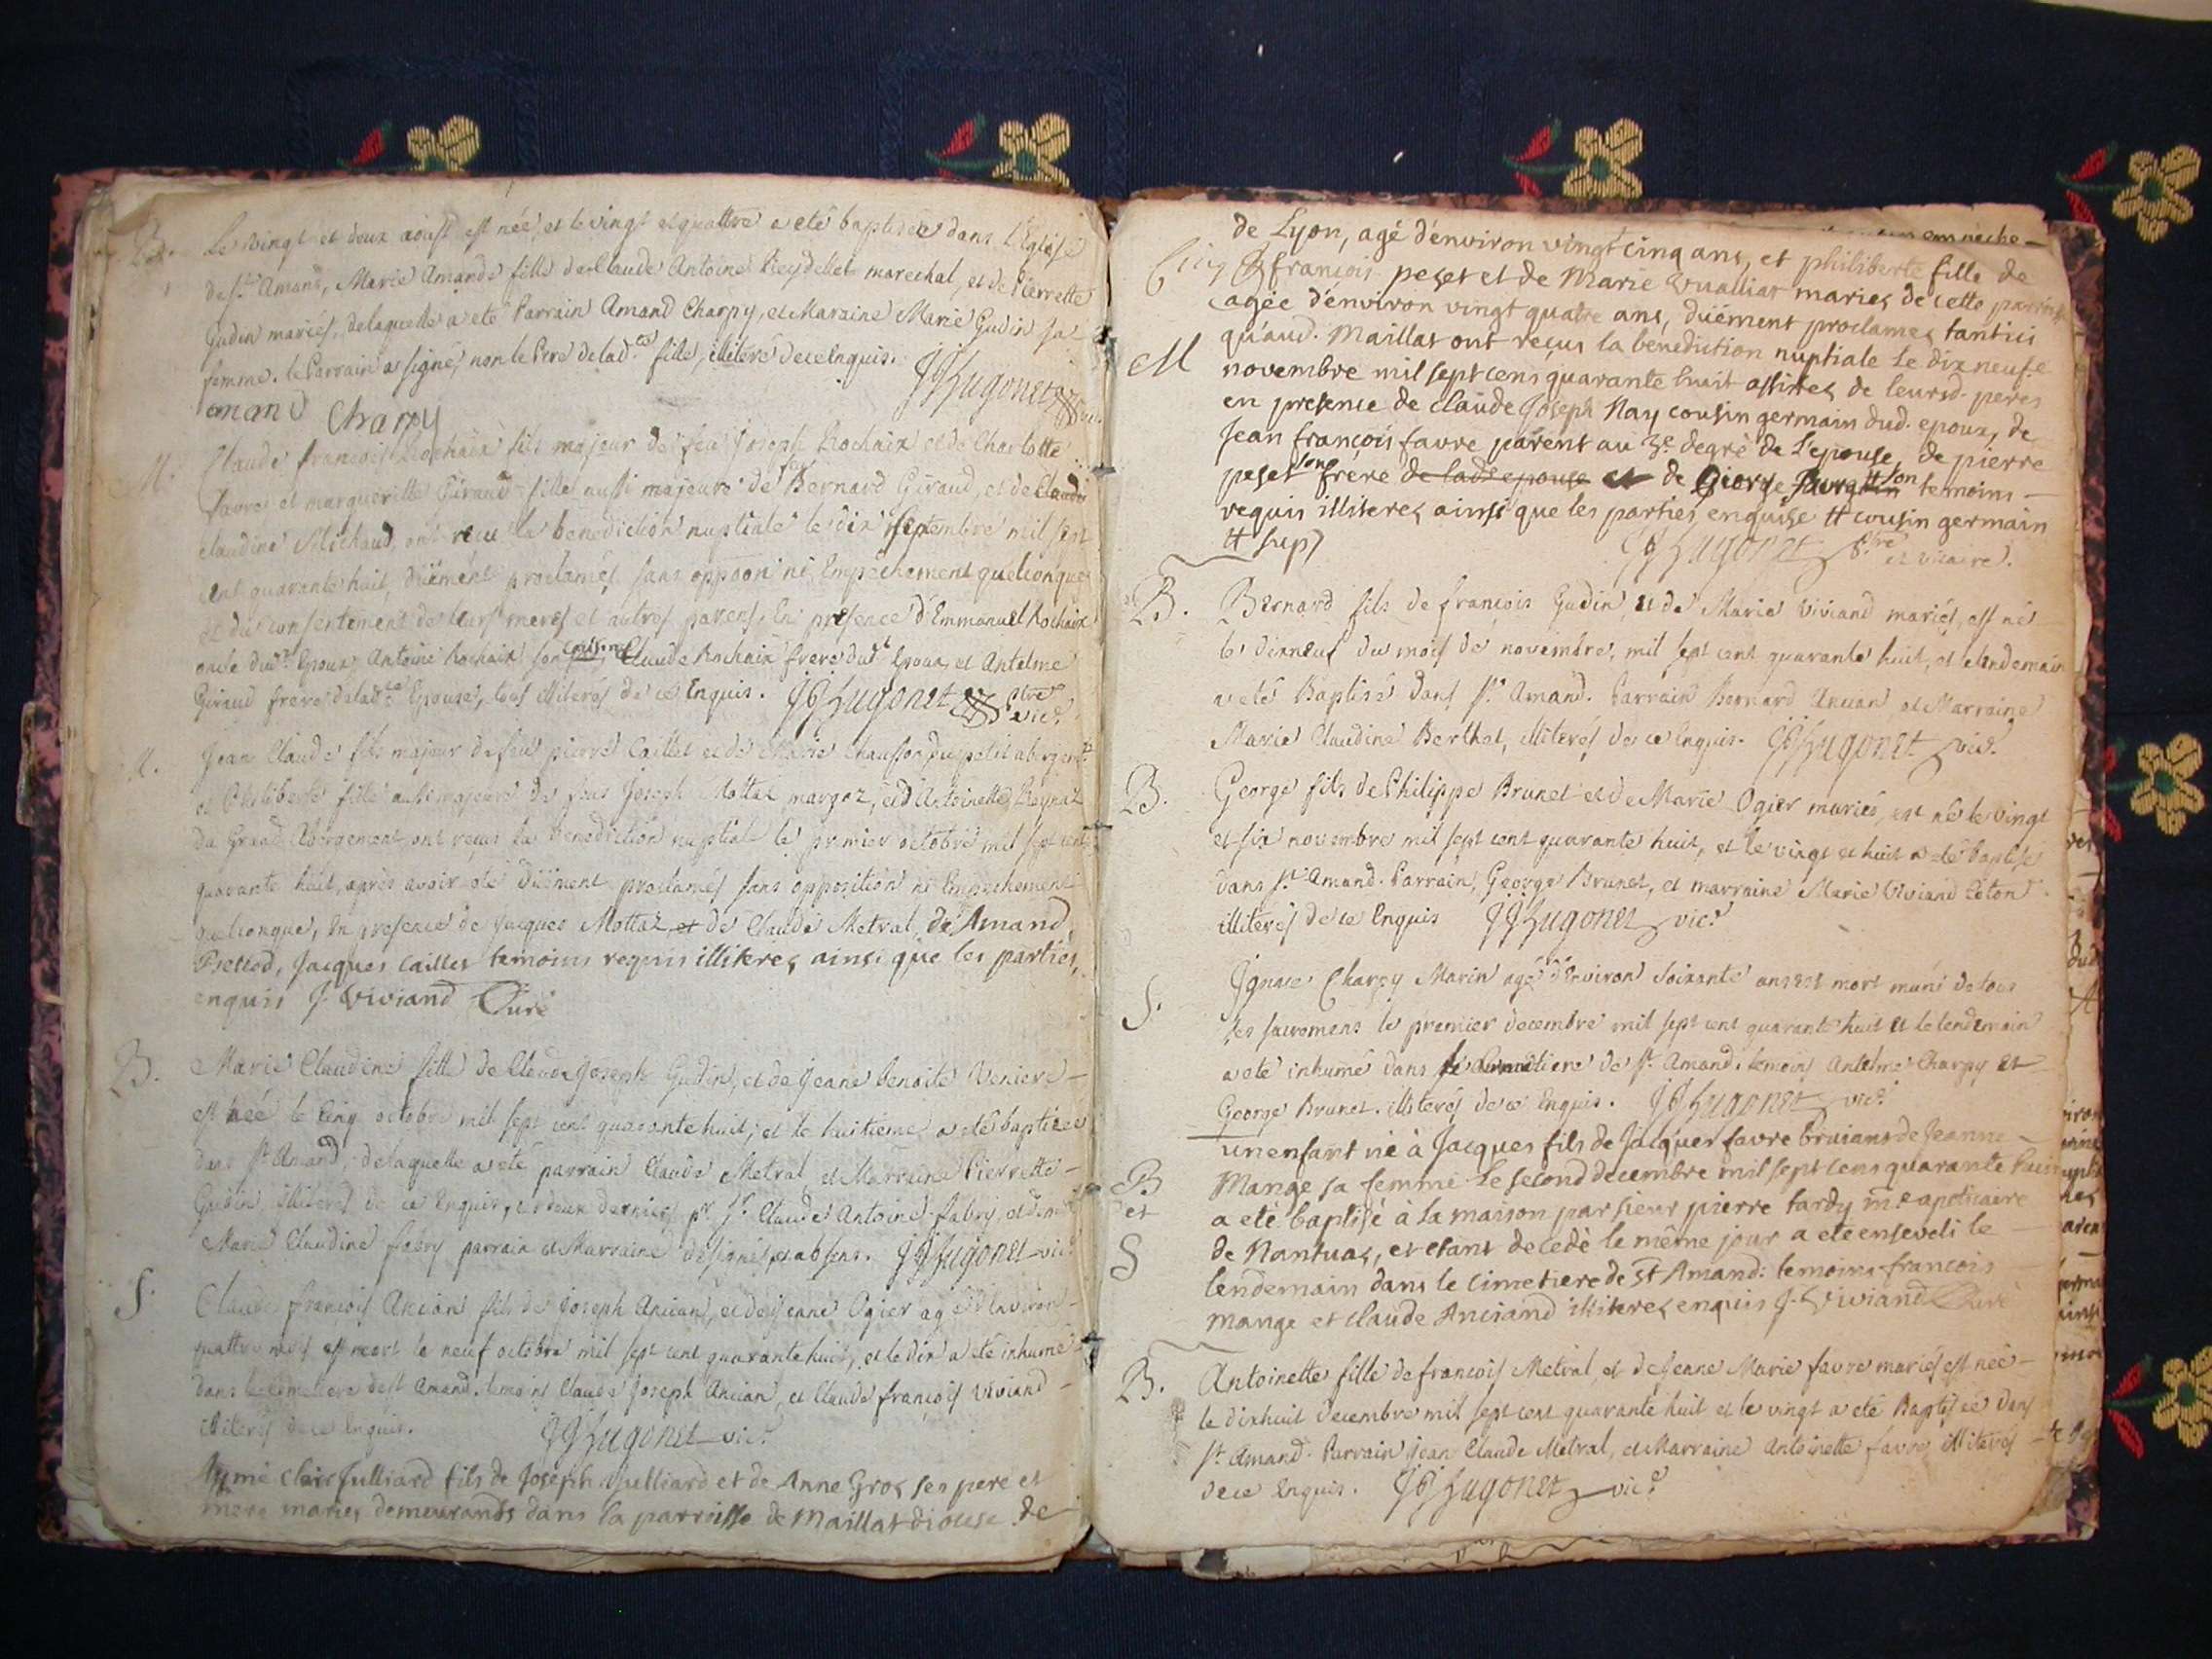 B. Le vingt et deux aoust est née, et le vingt et quattre a eté baptisée dans l'Eglise
de St. Amand, Marie Amande fille de Claude Antoine Reydellet marechal, et de Pierrette
Gudin mariés, delaquelle a eté Parrain Amand Charpy, et Maraine Marie Gudin sa
femme. le Parrain a signé, non le Pere de lad.te fille, illiteré de ce Enquis. JJHugonet
amand Charpy
M. Claude françois Rochaix fils majeur de feu Joseph Rochaix et de Charlotte
favre et margueritte Giraud fille aussi majeure de feu Bernard Giraud, et de Claudi
claudine Michaud, ont recu la benediction nuptiale le dix septembre mil sept
cent quarante huit, düement proclamés sans oppoon ni Empechement quelconque
et du consentement de leurs meres et autres parens, En presence d'Emmanuel Rochaix
oncle dud.t Epoux, Antoine Rochaix son cousin, Claude Rochaix frere dud.t Epoux, et Antelme
Giraud frere de lad.te Epouse, tous illiterés de ce Enquis. JJHugonet ptre vic.e
M. Jean Claude fils majeur de feu pierre Caillet et de Marie Chausson du petit abergemt
et Philiberte fille aussi majeure de feu Joseph Mottaz margoz, et d'Antoinette Reynaz
du Grand Abergement ont reçus la benediction nuptiale le premier octobre mil sept cent
quarante huit, après avoir eté düement proclamés sans opposition ni Empechement
quelconque, En presence de Jacques Mottaz et de Claude Metral, de Amand
Jacques Caillet temoins requis illiteres ainsi que les parties,
enquis J. Viviand Curé
B. Marie Claudine fille de Claude Joseph Gudin, et de Jeane benoite Veniere
est née le Cinq octobre mil sept cent quarante huit, et le huitieme a eté baptizée
dans St. Amand, delaquelle a eté parrain Claude Metral et Marraine Pierrette
Gudin, illiterés de ce Enquis, ces deux derniers pr. Sr. Claude Antoine fabry, et
Marie Claudine fabry parrain et Marraine designés absens. JJHugonet vic.e
S. Claude françois Ancian fils de Joseph Ancian, et de Jeane Ogier agé d'Environ
quattre mois est mort le neuf octobre mil sept cent quarante huit, et le dix a eté inhumé
dans le cimetiere de St. Amand. temoins Claude Joseph Ancian, et Claude françois Viviand
illiterés de ce Enquis. JJHugonet vic.e
Aymé Clair Julliard fils de Joseph Julliard et de Anne Gros ses pere et
mere mariés demeurants dans la parroisse de Maillat diocese de
de Lyon, agé d'environ vingt cinq ans, et philiberte fille de
françois peset et de Marie Vualliat mariés de cette parroisse
agée d'environ vingt quatre ans, duëment proclamés tant ici
M qu'aud. Maillat ont reçus la benediction nuptiale Le dix neuf.e
novembre mil sept cens quarante huit assistés de leursd. peres
en presence de Claude Joseph Nay cousin germain dud. epoux, de
Jean françois favre parent au 3e. degré de L'epouse, de pierre
peset son frere de lade epouse et de George favre # son temoins
requis illiteres ainsi que les parties enquise # cousin germain
# sup) JJHugonet Ptre et vicaire.
B. Bernard fils de françois Gudin, et de Marie Viviand mariés, est né
le dixneuf du mois de novembre, mil sept cent quarante huit, et lelendemain
a eté Baptisé dans St. Amand. Parrain Bernard Ancian, et Marraine
Marie Claudine Berthet, illiterés de ce Enquis. JJHugonet vic.e
B. George fils de Philippe Brunet et de Marie Ogier mariés, est né le vingt
et six novembre mil sept cent quarante huit, et le vingt et huit a eté baptisé
dans St. Amand. Parrain, George Brunet, et marraine Marie Viviand
illiterés de ce Enquis JJHugonet vic.e
S. Ignace Charpy Marin agé d'Environ soixante ans est mort muni de tous
les sacremens le premier decembre mil sept cent quarante huit et le lendemain
a eté inhumé dans le cimetiere de St. Amand. temoins Antelme Charpy et
George Brunet. illiterés de ce Enquis. JJHugonet vic.e
un enfant né à Jacques fils de Jacques favre bruians de Jeanne
B Mange sa femme Le second decembre mil sept cens quarante huit
et a eté baptisé à la maison par sieur pierre tardy m.e apoticaire
de Nantuas, et etant decedé le même jour a eté enseveli le
S lendemain dans le cimetiere de St Amand: temoins francois
mange et claude Anciand illiteres enquis J. Viviand Curé
B. Antoinette fille de francois Metral, et de Jeane Marie favre mariés est née
le dixhuit decembre mil sept cent quarante huit et le vingt a eté Baptisée dans
St. Amand. Parrain jean Claude Metral, et Marraine Antoinette favre, illiterés
de ce Enquis. JJHugonet vic.e